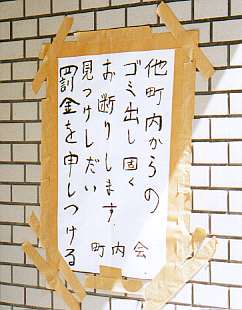 他町内からの
ゴミ出し固く
お断りします
見つけしだい
罰金を申しつける
町内会